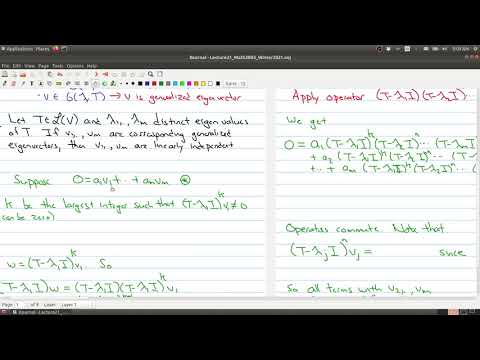 Applications Places
Xournal - Lecture21_Math3093_Winter2021.xoj
Sans 12
- v ∈ G(λ,T) → v is generalized eigenvector
Let T∈L(V) and λ1,..,λm distinct eigen values
of T. If v1,..,vm are corresponding generalized
eigenvectors, then v1,..,vm are linearly independent
Suppose 0=a1v1+..+amvm ⊛
k be the largest integer such that (T-λ1I)^k v1≠0
can be zero)
w=(T-λ1I)^k v1. So
(T-λ1I)w = (T-λ1I)(T-λ1I)^k v1
Apply operator (T-λ1I)^k(T-λ2I)
We get
0 = a1(T-λ1I)^k(T-λ2I)^n ... (T-
+ a2 (T-λ1I)^k(T-λ2I)^n ... (T-
+ .. + am (T-λ1I)^k(T-λ2I)^n ... (T-
Operators commute. Note that
(T-λjI)^n vj = since
So all terms with v2,..,vm
Page 1 of 9 Layer: Layer 1
Xournal - Lecture21_...